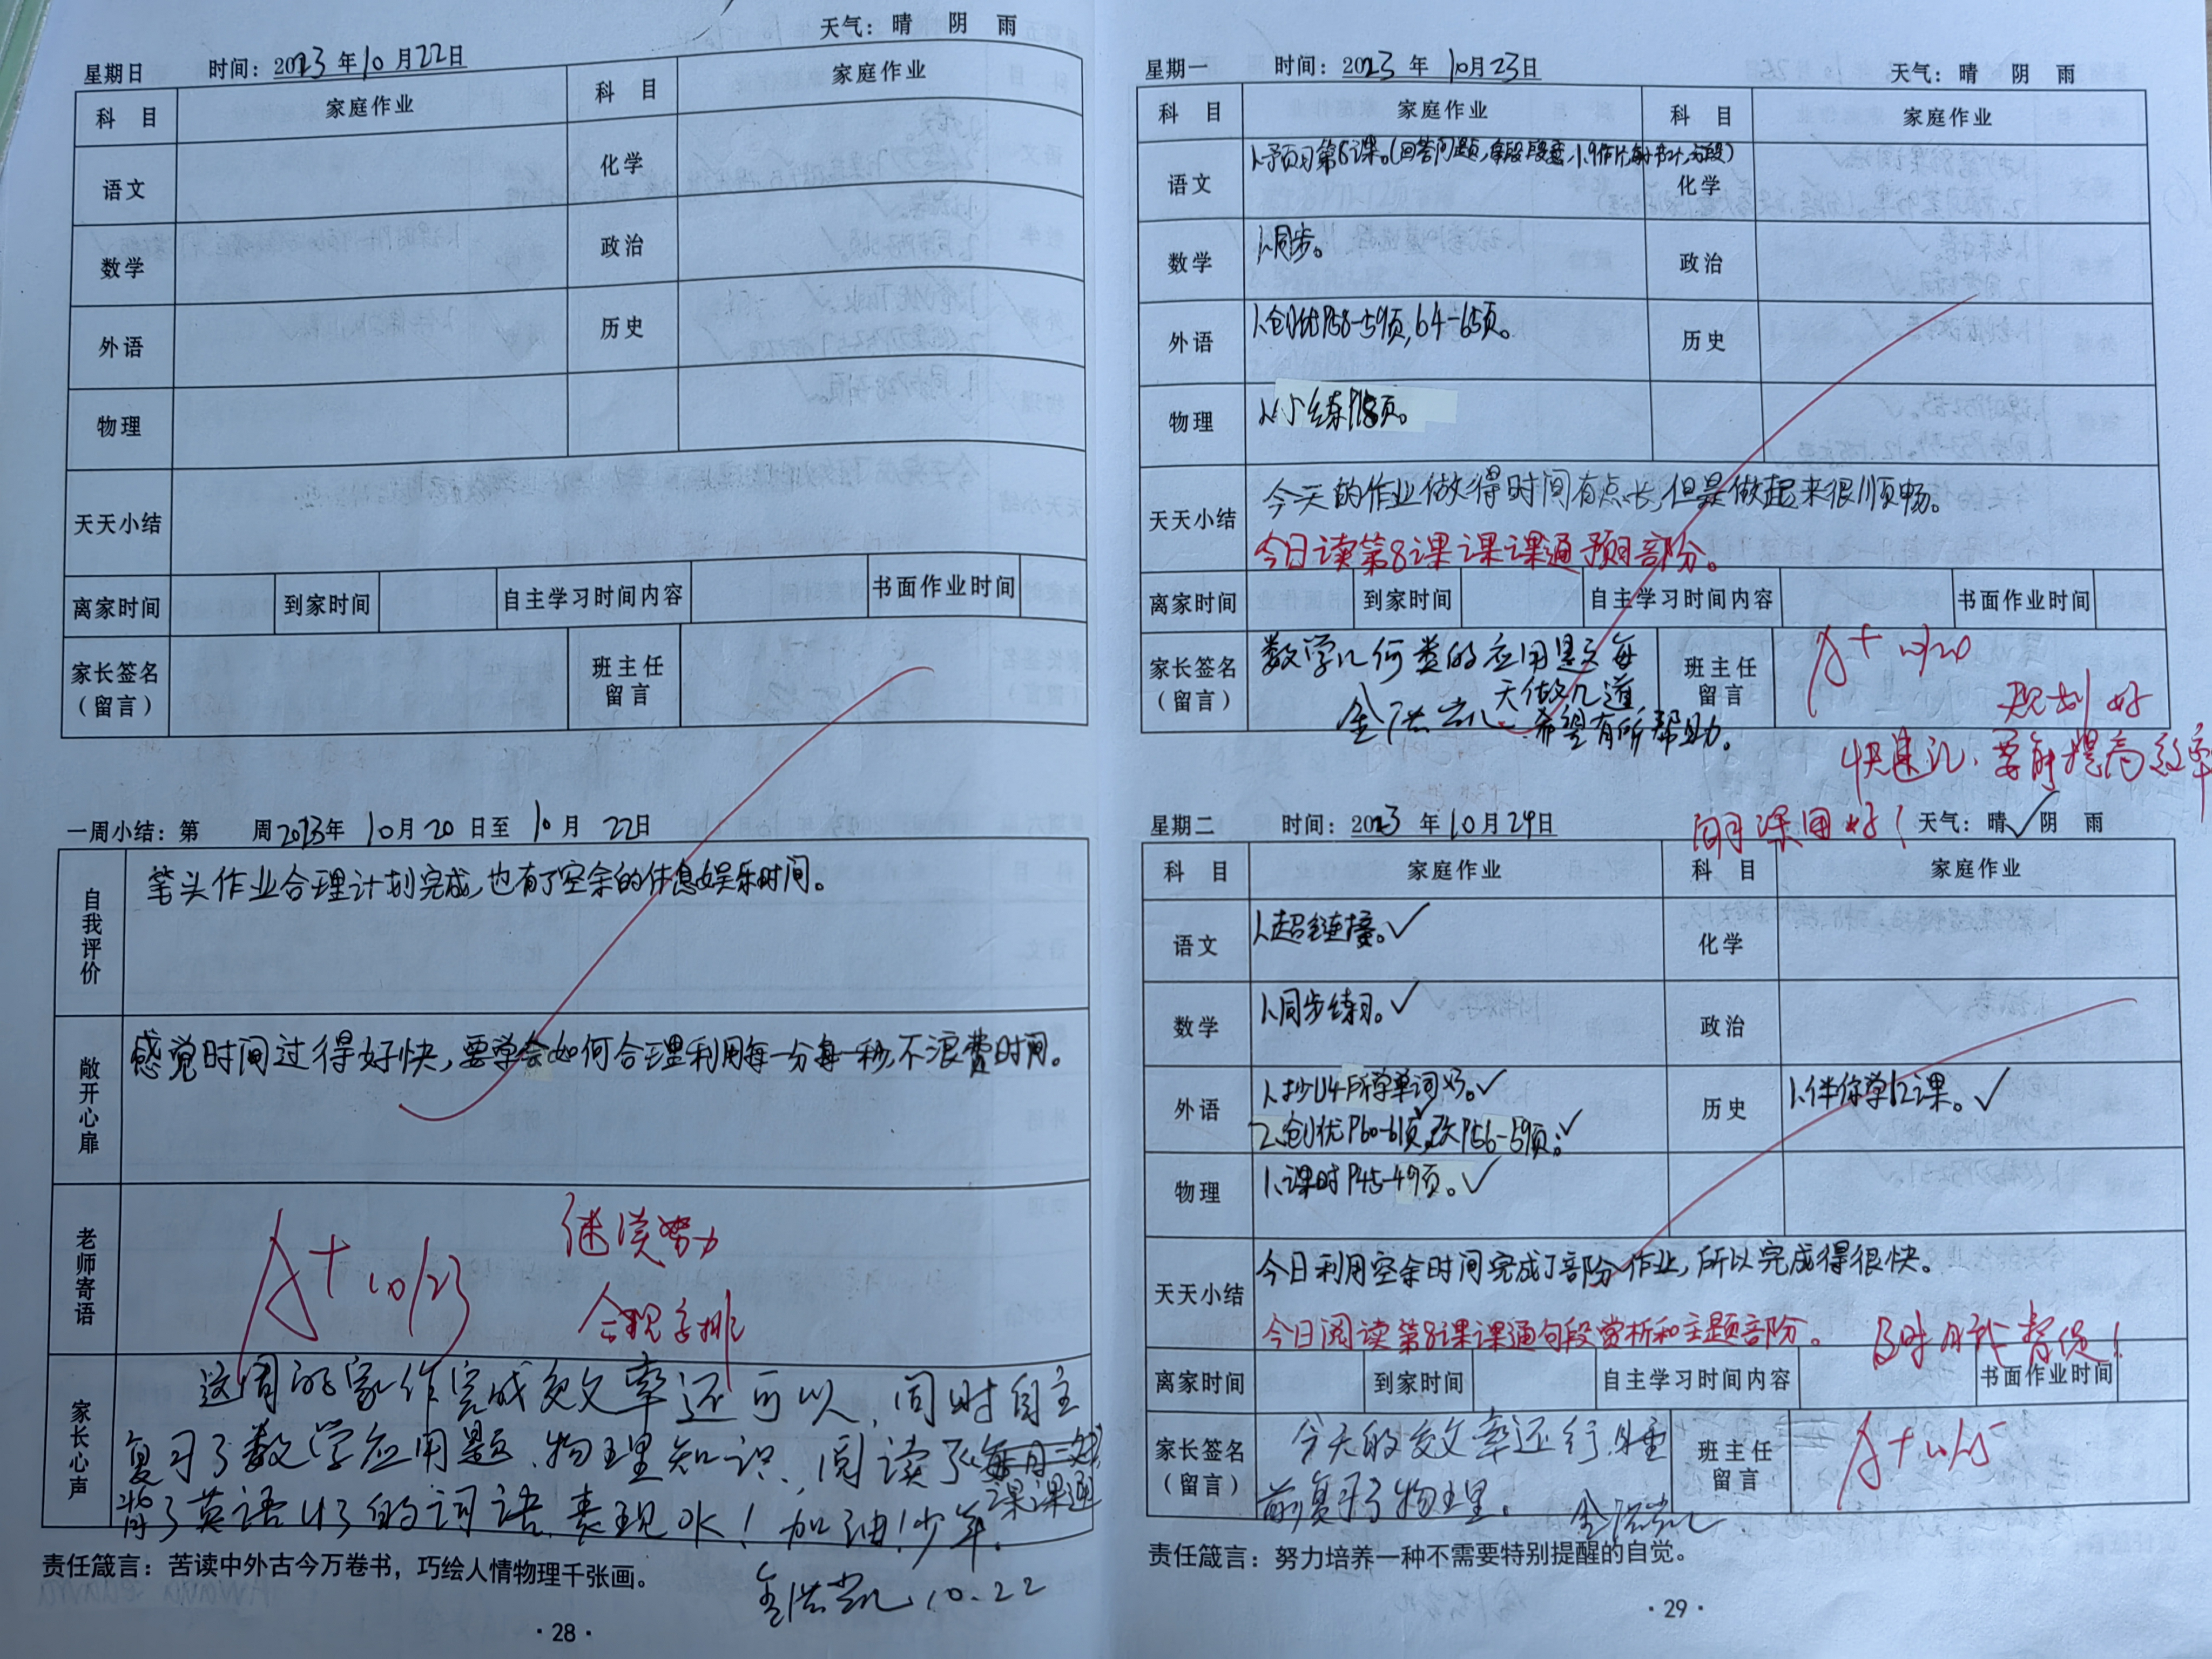 星期日 时间：2023年10月22日 天气：晴 阴 雨
科 目 家庭作业 科 目 家庭作业
语文 化学
数学 政治
外语 历史
物理
天天小结
离家时间 到家时间 自主学习时间内容 书面作业时间
家长签名（留言） 班主任留言
一周小结：第 周2023年10月20日至10月22日
自我评价 笔头作业合理计划完成,也有了空余的休息娱乐时间。
敞开心扉 感觉时间过得好快,要学会如何合理利用每一分每一秒,不浪费时间。
老师寄语 A+ 10/23 继续努力
合理安排
家长心声 这周的家作完成效率还可以,同时自主
复习了数学应用题、物理知识、阅读了课课通
背了英语U3的词语,表现OK！加油！少年。
10.22
责任箴言：苦读中外古今万卷书，巧绘人情物理千张画。
·28·
星期一 时间：2023年10月23日 天气：晴 阴 雨
科 目 家庭作业 科 目 家庭作业
语文 1.预习第8课。(回答问题, 化学
数学 1.同步。 政治
外语 1.创优P58-59页,64-65页。 历史
物理 1.小练
天天小结 今天的作业做得时间有点长,但是做起来很顺畅。
今日读第8课课课通预习部分。
离家时间 到家时间 自主学习时间内容 书面作业时间
家长签名（留言） 数学几何类的应用题每
天做几道,
希望有所帮助。
班主任留言 A+
规划好
提高效率
星期二 时间：2023年10月24日 天气：晴✓ 阴 雨
科 目 家庭作业 科 目 家庭作业
语文 1.超链接。✓ 化学
数学 1.同步练习。✓ 政治
外语 1.抄U4所学单词 ✓ 历史 1.伴你学12课。✓
2.创优P60-61页,改P56-59页。✓
物理 1.课时P45-49页。✓
天天小结 今日利用空余时间完成了部分作业,所以完成得很快。
今日阅读第8课课通句段赏析和主题部分。
离家时间 到家时间 自主学习时间内容 书面作业时间
家长签名（留言） 今天的效率还行,睡
前复习了物理。
班主任留言 A+
责任箴言：努力培养一种不需要特别提醒的自觉。
·29·